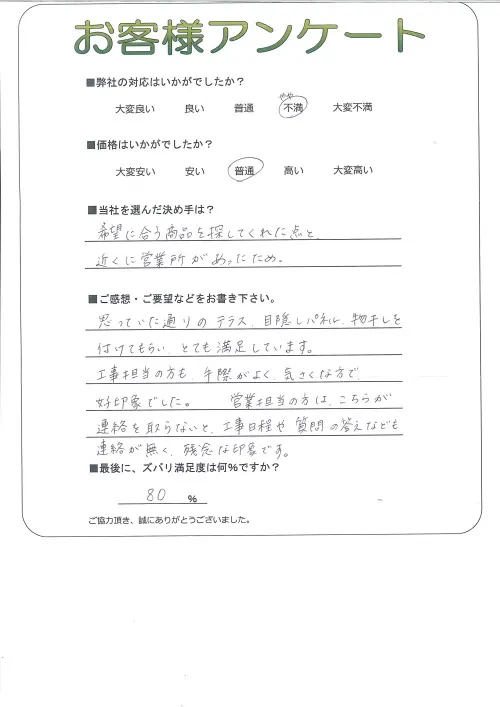 お客様アンケート
■弊社の対応はいかがでしたか?
大変良い 良い 普通 やや不満 大変不満
■価格はいかがでしたか?
大変安い 安い 普通 高い 大変高い
■当社を選んだ決め手は?
希望に合う商品を探してくれた点と、
近くに営業所があったため。
■ご感想・ご要望などをお書き下さい。
思っていた通りのテラス、目隠しパネル、物干しを
付けてもらい、とても満足しています。
工事担当の方も、手際がよく、気さくな方で、
好印象でした。 営業担当の方は、こちらが
連絡を取らないと、工事日程や質問の答えなども
連絡が無く、残念な印象です。
■最後に、ズバリ満足度は何%ですか?
80 %
ご協力頂き、誠にありがとうございました。